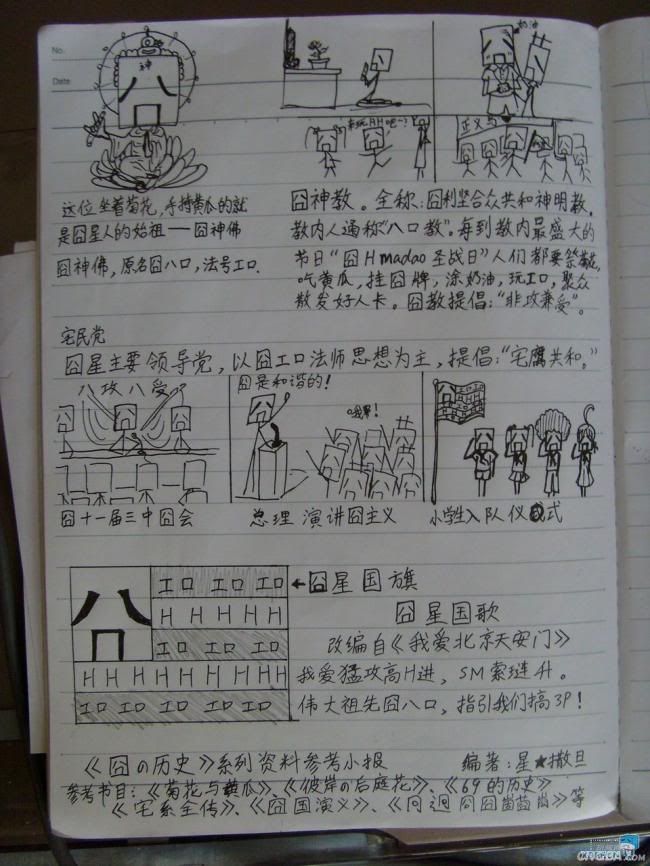 No.
Date
神
奶油
来玩AH吧~?
正义与
这位坐着菊花,手持黄瓜的就
是囧星人的始祖——囧神佛
囧神佛,原名囧八口,法号工口.
囧神教。全称:囧利坚合众共和神明教。
教内人通称"八口教"。每到教内最盛大的
节日"囧H madao圣战日"人们都要祭菊花,
吃黄瓜,挂囧牌,涂奶油,玩工口,聚众
散发好人卡。囧教提倡:"非攻兼受"。
宅民党
囧星主要领导党,以囧工口法师思想为主,提倡:"宅腐共和。"
八攻八受?
囧是和谐的!
哦耶!
囧十一届三中囧会
总理演讲囧主义
小学生入队仪式
工口 工口 工口
H H H H H
工口 工口 工口
H H H H H H H H
工口 工口 工口 工口 工口
←囧星国旗
囧星国歌
改编自《我爱北京天安门》
我爱猛攻高H进,SM索琏4H。
伟大祖先囧八口,指引我们搞3P!
《囧の历史》系列资料参考小报
编著:星★撒旦
参考书目:《菊花与黄瓜》、《彼岸の后庭花》、《69的历史》
《宅系全传》、《囧国演义》、
等